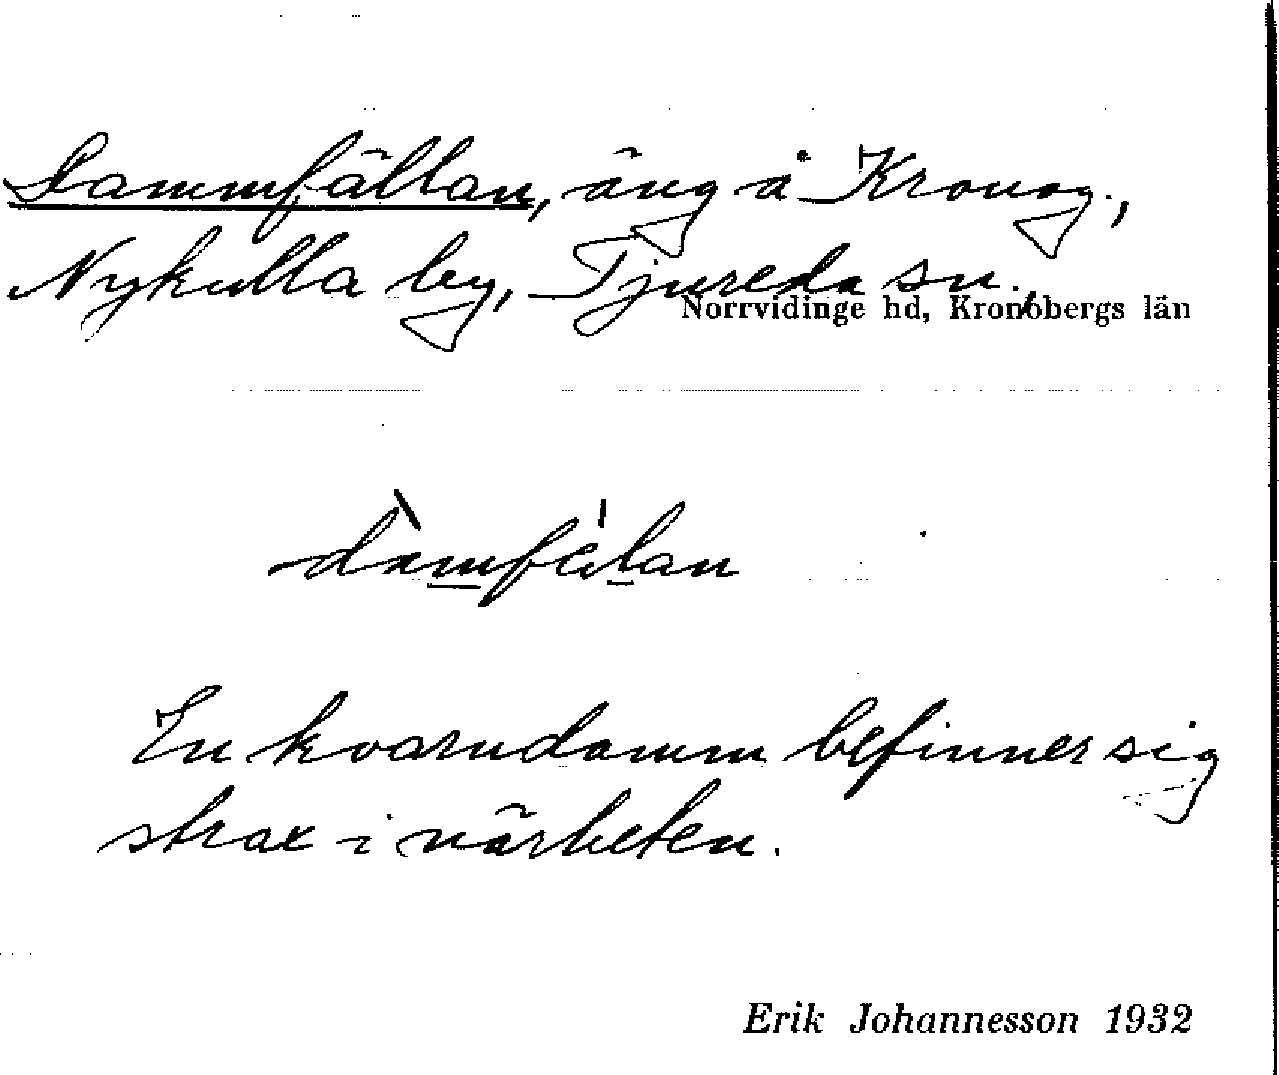 Dammfällan, äng å Kronog.,
Nykulla by, Tjureda sn.,
Norrvidinge hd, Kronobergs län
dàm̲fǽl̲an
En kvarndamm befinner sig
strax i närheten.
Erik Johannesson 1932